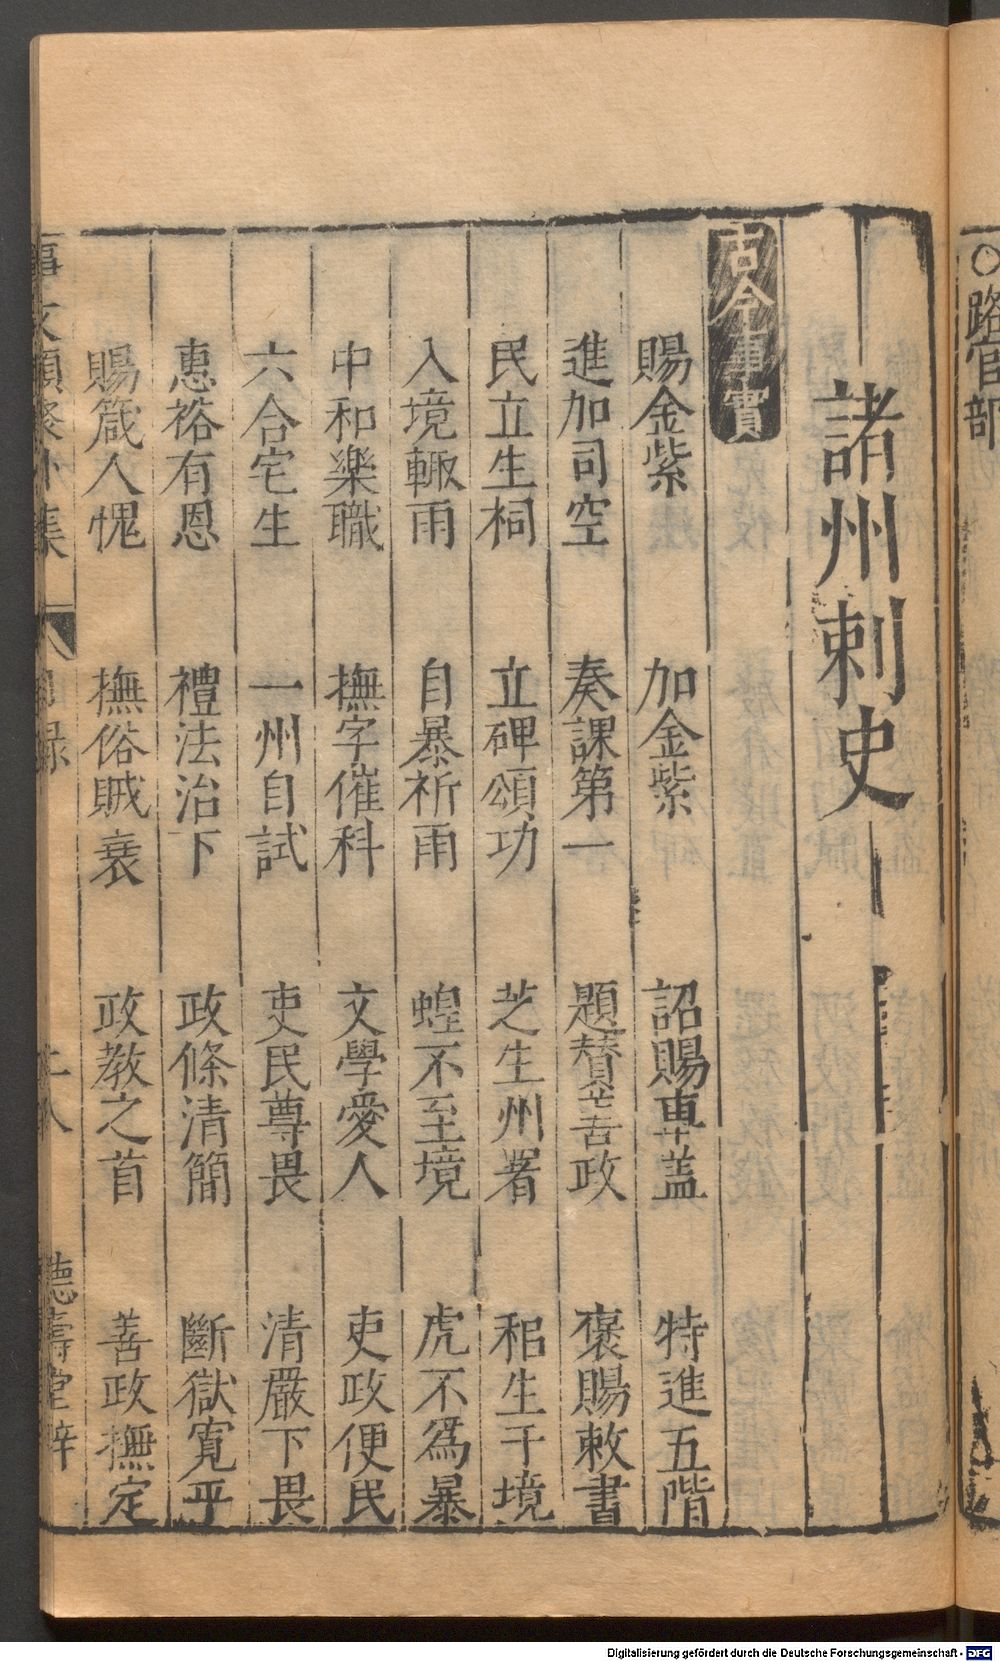 ○路官部
諸州刺史
古今事實
賜金紫 加金紫 詔賜車蓋 特進五階
進加司空 奏課第一 題賛善政 褒賜敕書
民立生祠 立碑頌功 芝生州署 秬生于境
入境輙雨 自暴祈雨 蝗不至境 虎不爲暴
中和樂職 撫字催科 文學愛人 吏政便民
六合宅生 一州自試 吏民尊畏 清嚴下畏
惠裕有恩 禮法治下 政條清簡 斷獄寬平
賜箴人愧 撫俗賊衰 政教之首 善政撫定
事文類聚外集 目録 德壽堂梓
Digitalisierung gefördert durch die Deutsche Forschungsgemeinschaft - DFG